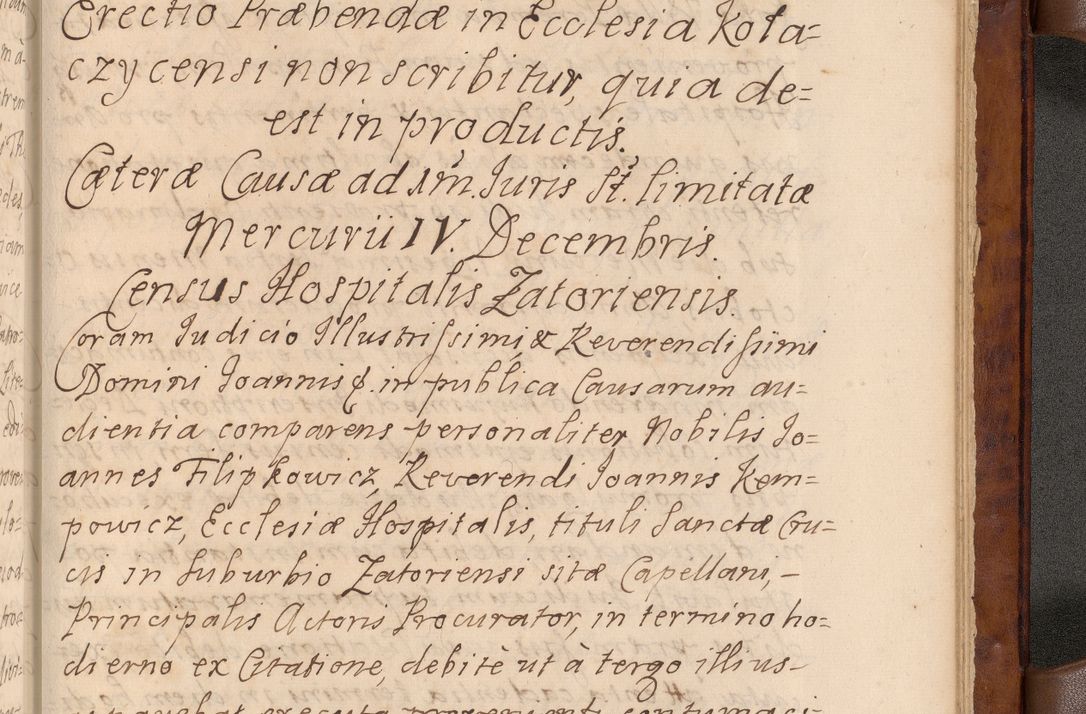 Erectio Præbendæ in Ecclesia Kota=
czycensi non scribitur, quia de=
est in productis.
Cæteræ Causæ ad 1m. Juris St. limitatæ
Mercurii IV. Decembris.
Census Hospitalis Zatoriensis.
Coram Judicio Illustrissimi & Reverendissimi
Domini Joannis &. in publica Causarum au=
dientia comparens personaliter Nobilis Jo=
annes Filipkowicz, Reverendi Joannis Kem=
powicz, Ecclesiæ Hospitalis, tituli Sanctæ Cru=
cis in Suburbio Zatoriensi sitæ Capellani, -
Principalis Actoris Procurator, in termino ho=
dierno ex Citatione, debitè ut à tergo illius-